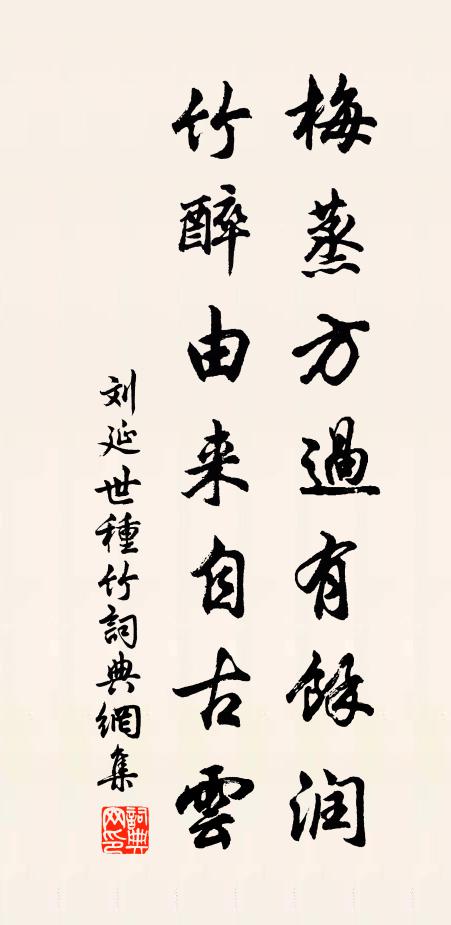 梅蒸方過有餘润
竹醉由来自古雲
刘延世種竹詞典網集
詞典网印